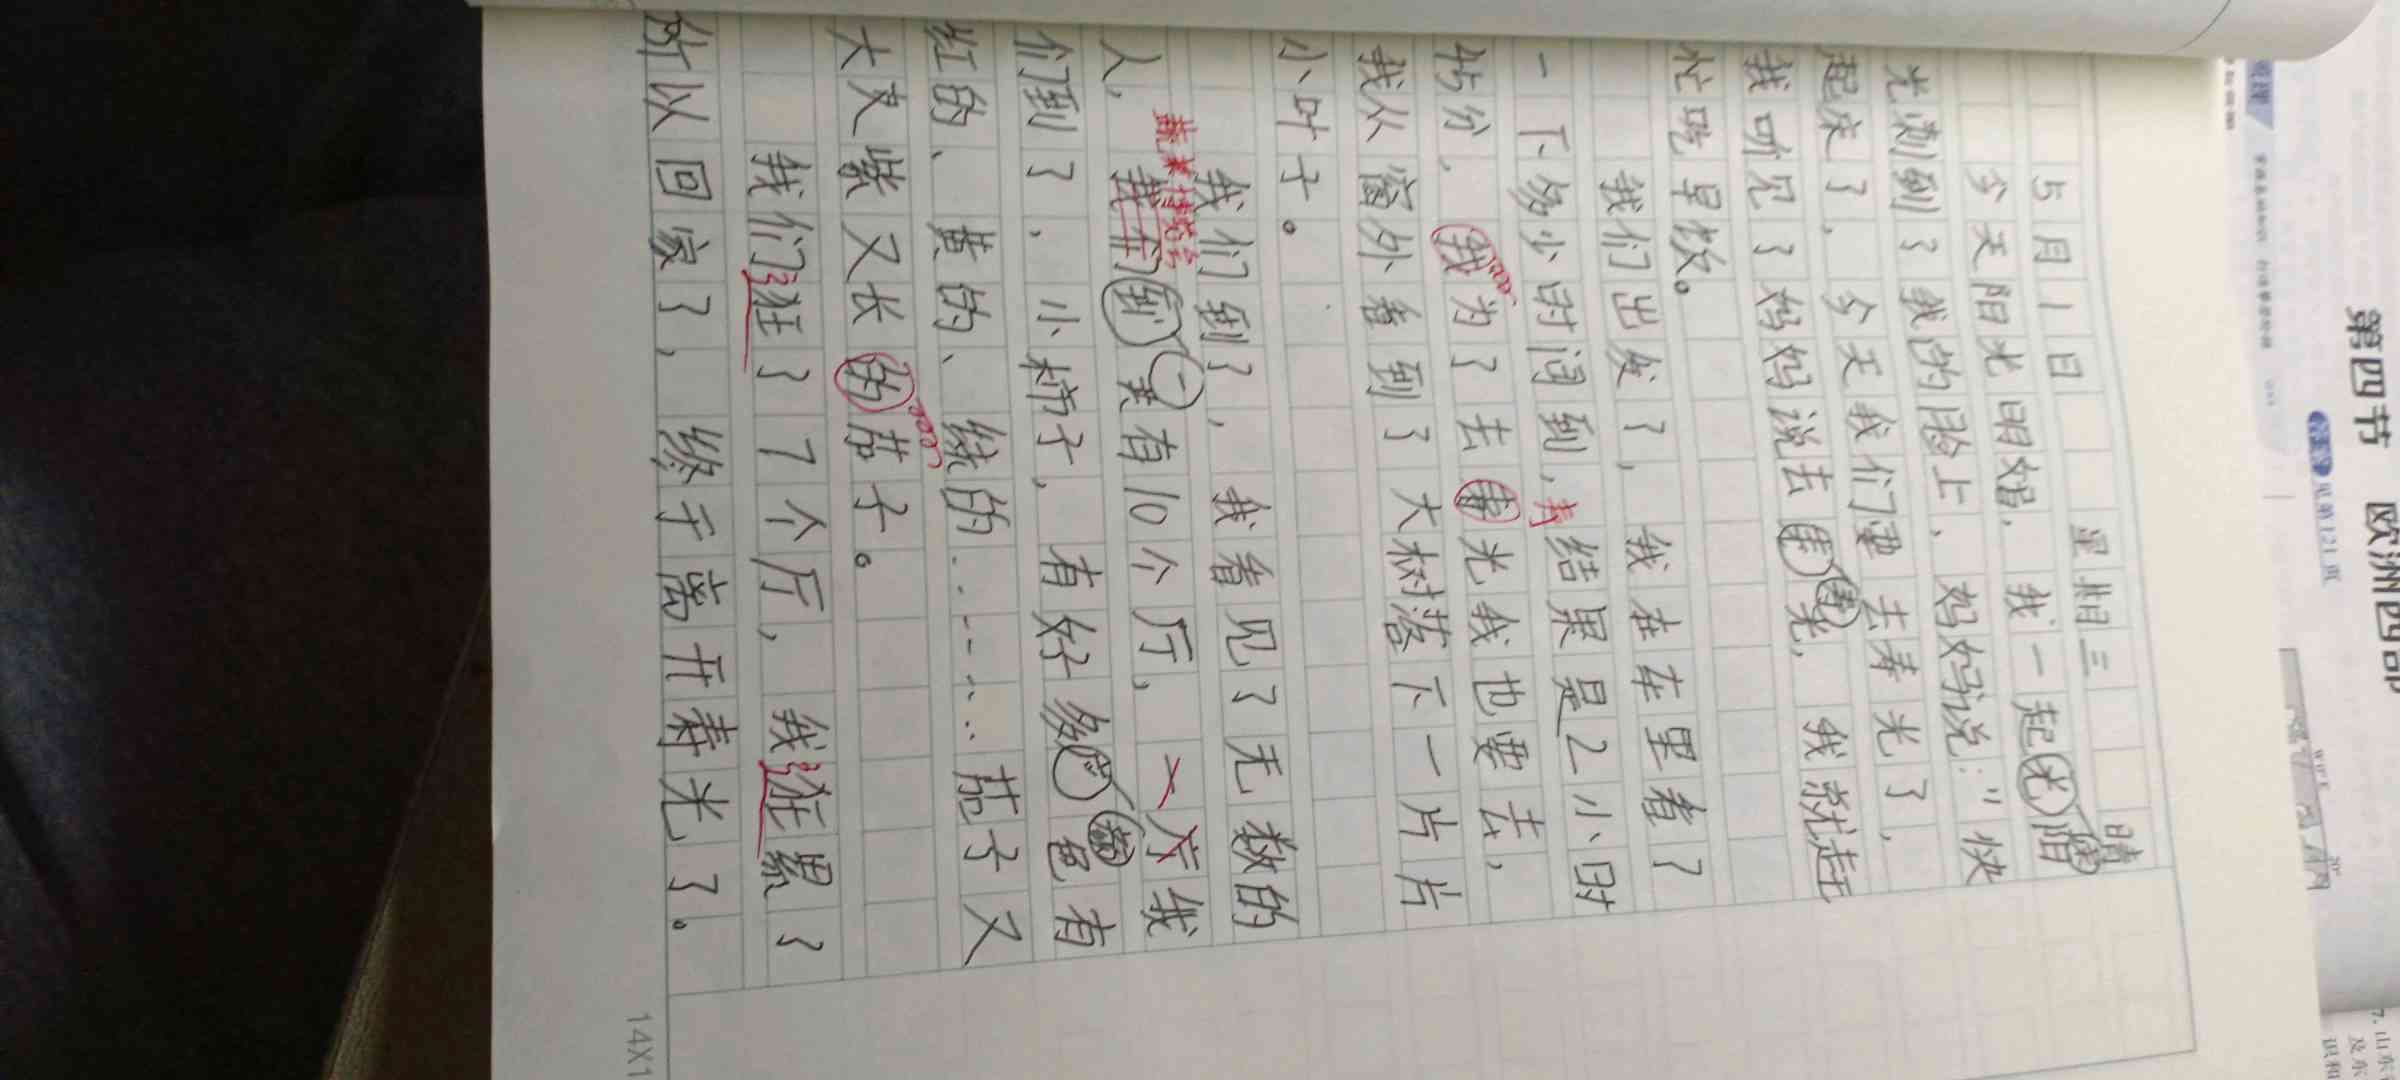 5月1日 星期三 晴
今天阳光明媚,我一起光床
光刺到了我的脸上,妈妈说:"快
起床了,今天我们要去寿光了,
我听见了妈妈说去寿光,我就赶
忙吃早饭。
我们出发了,我在车里看了
一下多少时间到,结果是2小时
45分,我为了去寿光我也要去,
我从窗外看到了大树落下一片片
小叶子。
我们到了,我看见了无数的
人,我们到一里有10个厅,
们到了,小柿子,有好多颜色有
红的、黄的、绿的……茄子又
大又紫又长的茄子。
我们逛了7个厅,我逛累了
所以回家了,终于离开寿光了。
14X1
第四节 欧洲西部
见第121页